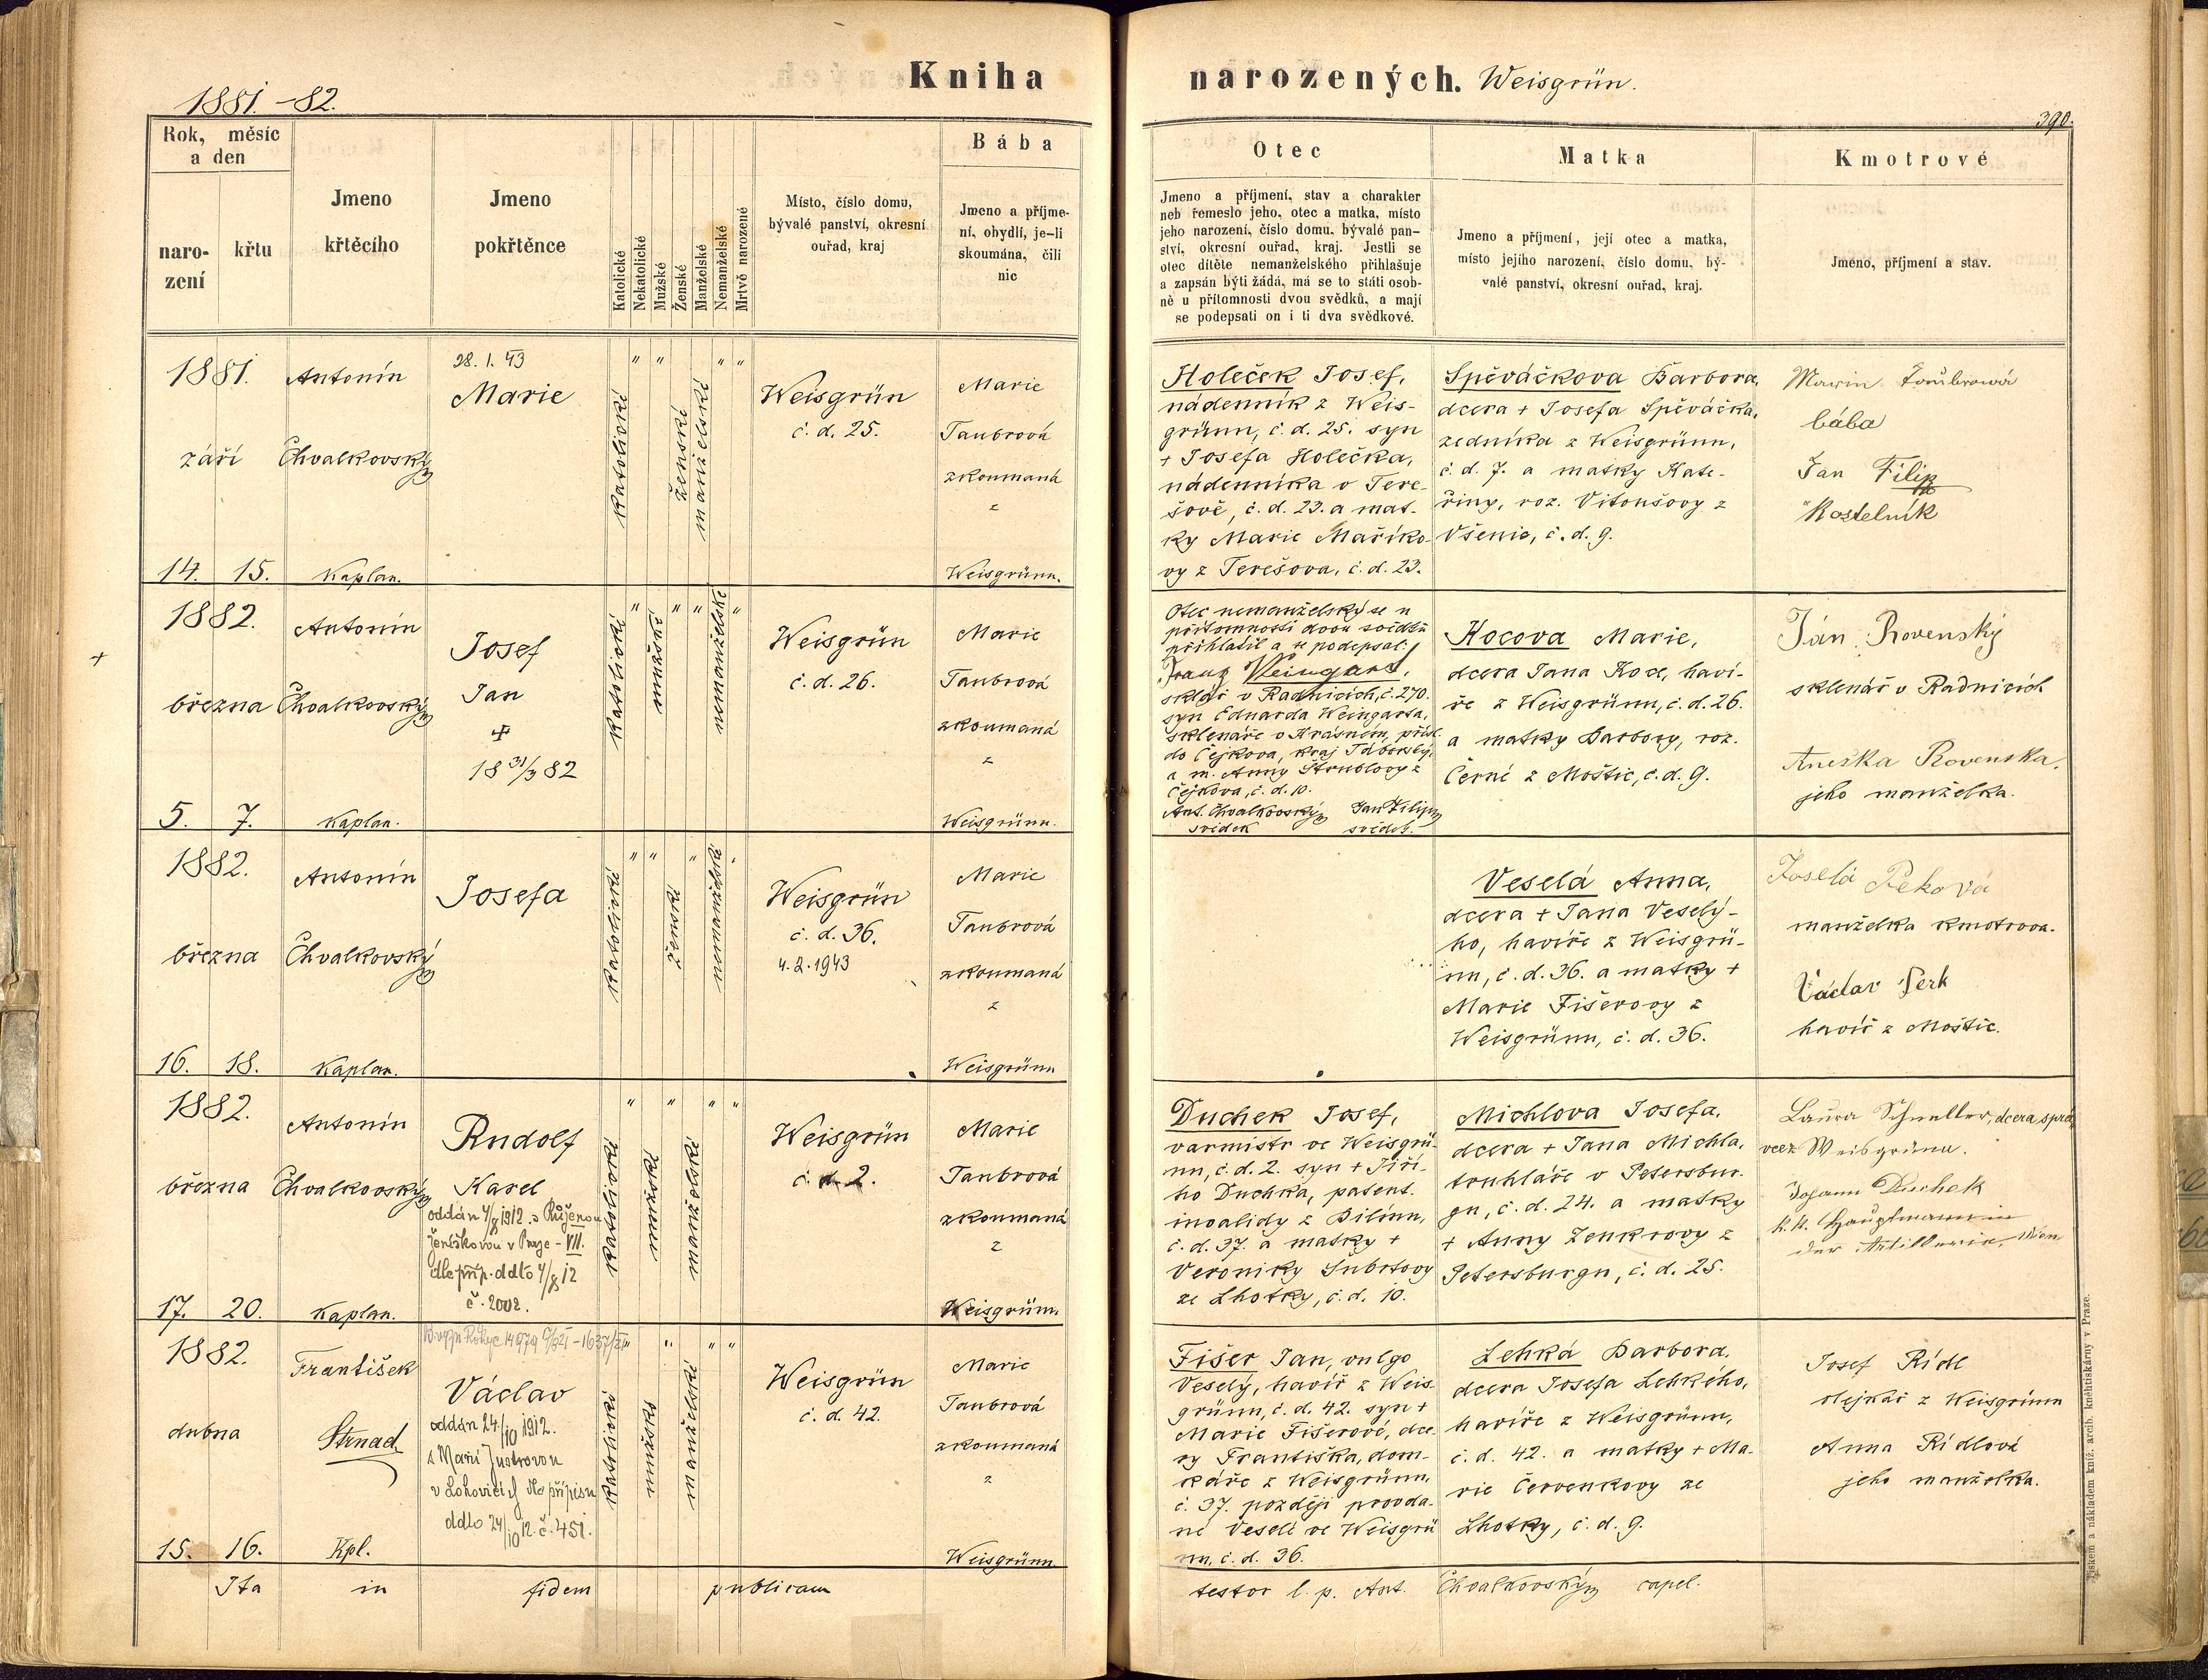 1881.-82.
Kniha narozených. Weisgrün.
390.
Rok, měsíc a den
narození
křtu
Jmeno křtěcího
Jmeno pokřtěnce
Katolické
Nekatolické
Mužské
Ženské
Manželské
Nemanželské
Mrtvě narozené
Místo, číslo domu,
bývalé panství, okresní
ouřad, kraj
Bába
Jmeno a příjme-
ní, obydlí, je-li
skoumána, čili
nic
Otec
Jmeno a příjmení, stav a charakter
neb řemeslo jeho, otec a matka, místo
jeho narození, číslo domu, bývalé pan-
ství, okresní ouřad, kraj. Jestli se
otec dítěte nemanželského přihlašuje
a zapsán býti žádá, má se to státi osob-
ně u přítomnosti dvou svědků, a mají
se podepsati on i ti dva svědkové.
Matka
Jmeno a příjmení, její otec a matka,
místo jejího narození, číslo domu, bý-
valé panství, okresní ouřad, kraj.
Kmotrové
Jmeno, příjmení a stav.
1881.
září
14. 15.
Antonín
Chvalkovský
Kaplan.
28. 1. 43
Marie
katolické
" "
ženské
manželské
" "
Weisgrün
č. d. 25.
Marie
Taubrová
zkoumaná
z
Weisgrünu.
Holeček Josef,
nádenník z Weis-
grünu, č. d. 25. syn
+ Josefa Holečka,
nádenníka v Tere-
šově, č. d. 23. a mat-
ky Marie Maříko-
vy z Terešova, č. d. 23.
Spěváčkova Barbora,
dcera + Josefa Spěváčka,
zedníka z Weisgrünu,
č. d. 7. a matky Kate-
řiny, roz. Vitoušovy z
Všenic, č. d. 9.
bába
Jan Filip
Kostelník
1882.
března
5. 7.
Antonín
Chvalkovský
Kaplan.
Josef
Jan
18 31/3 82
katolické
"
mužské
" "
nemanželské
"
Weisgrün
č. d. 26.
Marie
Taubrová
zkoumaná
z
Weisgrünu.
Otec nemanželský se u
přítomnosti dvou svědků
přihlásil a se podepsal:
Franz Weingart,
sklář v Radnicích, č. 270.
syn Eduarda Weingarta,
sklenáře v Krásném, přísl.
do Čejkova, kraj Táborský,
a m. Anny Štrublovy z
Čejkova, č. d. 10.
Ant. Chvalkovský Jan Filip
svědek svědek.
Kocova Marie,
dcera Jana Koce, haví-
ře z Weisgrünu, č. d. 26.
a matky Barbory, roz.
Černé z Moštic, č. d. 9.
Ján Rovenský
sklenář v Radnicích
Anežka Rovenska,
jeho manželka.
1882.
března
16. 18.
Antonín
Chvalkovský
Kaplan.
Josefa
katolické
" "
ženské
"
nemanželské
"
Weisgrün
č. d. 36.
4. 2. 1943
Marie
Taubrová
zkoumaná
z
Weisgrünu
Veselá Anna,
dcera + Jana Veselý-
ho, havíře z Weisgrü-
nu, č. d. 36. a matky +
Marie Fišerovy z
Weisgrünu, č. d. 36.
manželka kmotrova.
Václav Perk
havíř z Moštic.
1882.
března
17. 20.
Antonín
Chvalkovský
Kaplan.
Rudolf
Karel
oddán 4/8 1912. s Růženou
Jeníškovou v Praze - VII.
dle příp. ddto 4/8 12
č. 2002.
katolické
"
mužské
"
manželské
" "
Weisgrün
č. d. 2.
Marie
Taubrová
zkoumaná
z
Weisgrünu.
Duchek Josef,
varmistr ve Weisgrü-
nu, č. d. 2. syn + Jiří-
ho Duchka, patent.
invalidy z Bilínu,
č. d. 37. a matky +
Veroniky Šubrtovy
ze Lhotky, č. d. 10.
Michlova Josefa,
dcera + Jana Michla,
truhláře v Petersbur-
gu, č. d. 24. a matky
+ Anny Zenkrovy z
Petersburgu, č. d. 25.
Laura Schneller, dcera sprá-
vce z Weisgrünu.
Johann Duchek
k. k. Hauptmann in
der Artillerie, Wien
1882.
dubna
15. 16.
František
Strnad
Kpl.
Václav
oddán 24./10 1912.
s Marií
v Lohovicích dle přípisu
ddto 24/10 12. č. 451.
katolické
"
mužské
"
manželské
" "
Weisgrün
č. d. 42.
Marie
Taubrová
zkoumaná
z
Weisgrünu
Fišer Jan, vulgo
Veselý, havíř z Weis-
grünu, č. d. 42. syn +
Marie Fišerové, dce-
ry Františka, dom-
káře z Weisgrünu,
č. 37. později provda-
né Veselé ve Weisgrü-
nu, č. d. 36.
Lehká Barbora,
dcera Josefa Lehkého,
havíře z Weisgrünu,
č. d. 42. a matky + Ma-
rie Červenkovy ze
Lhotky, č. d. 9.
Josef Rídl
olejkář z Weisgrünu
Anna Rídlová
jeho manželka.
Ita in fidem publicam
testor l. p. Ant. Chvalkovský capel.
Tiskem a nákladem kníž. arcib. knihtiskárny v Praze.